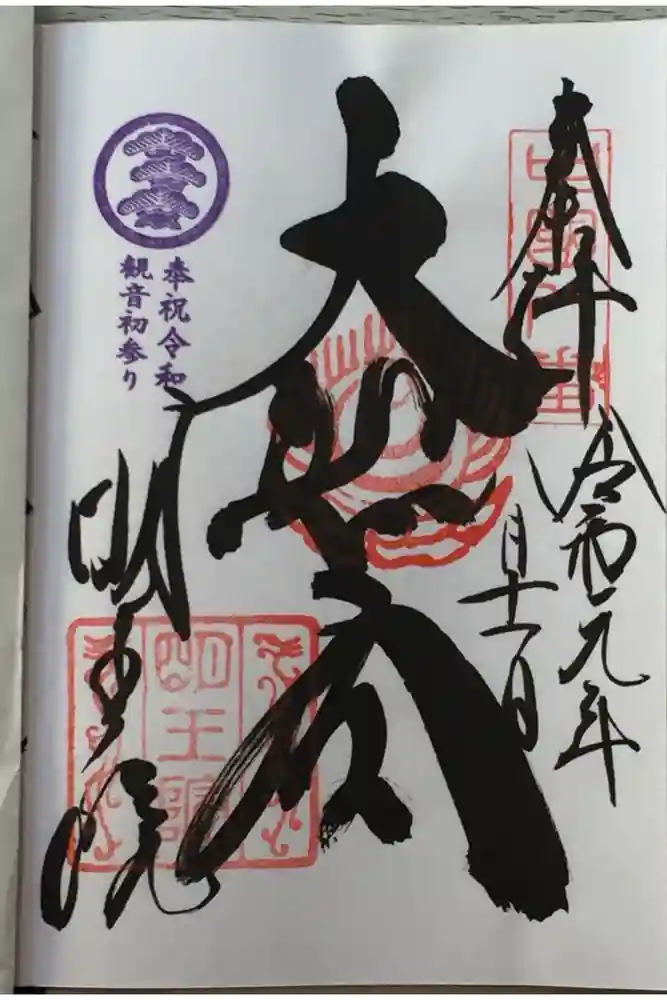 奉拝
令和元年
月十一日
大悲殿
明王院
奉祝令和
観音初参り
明王院